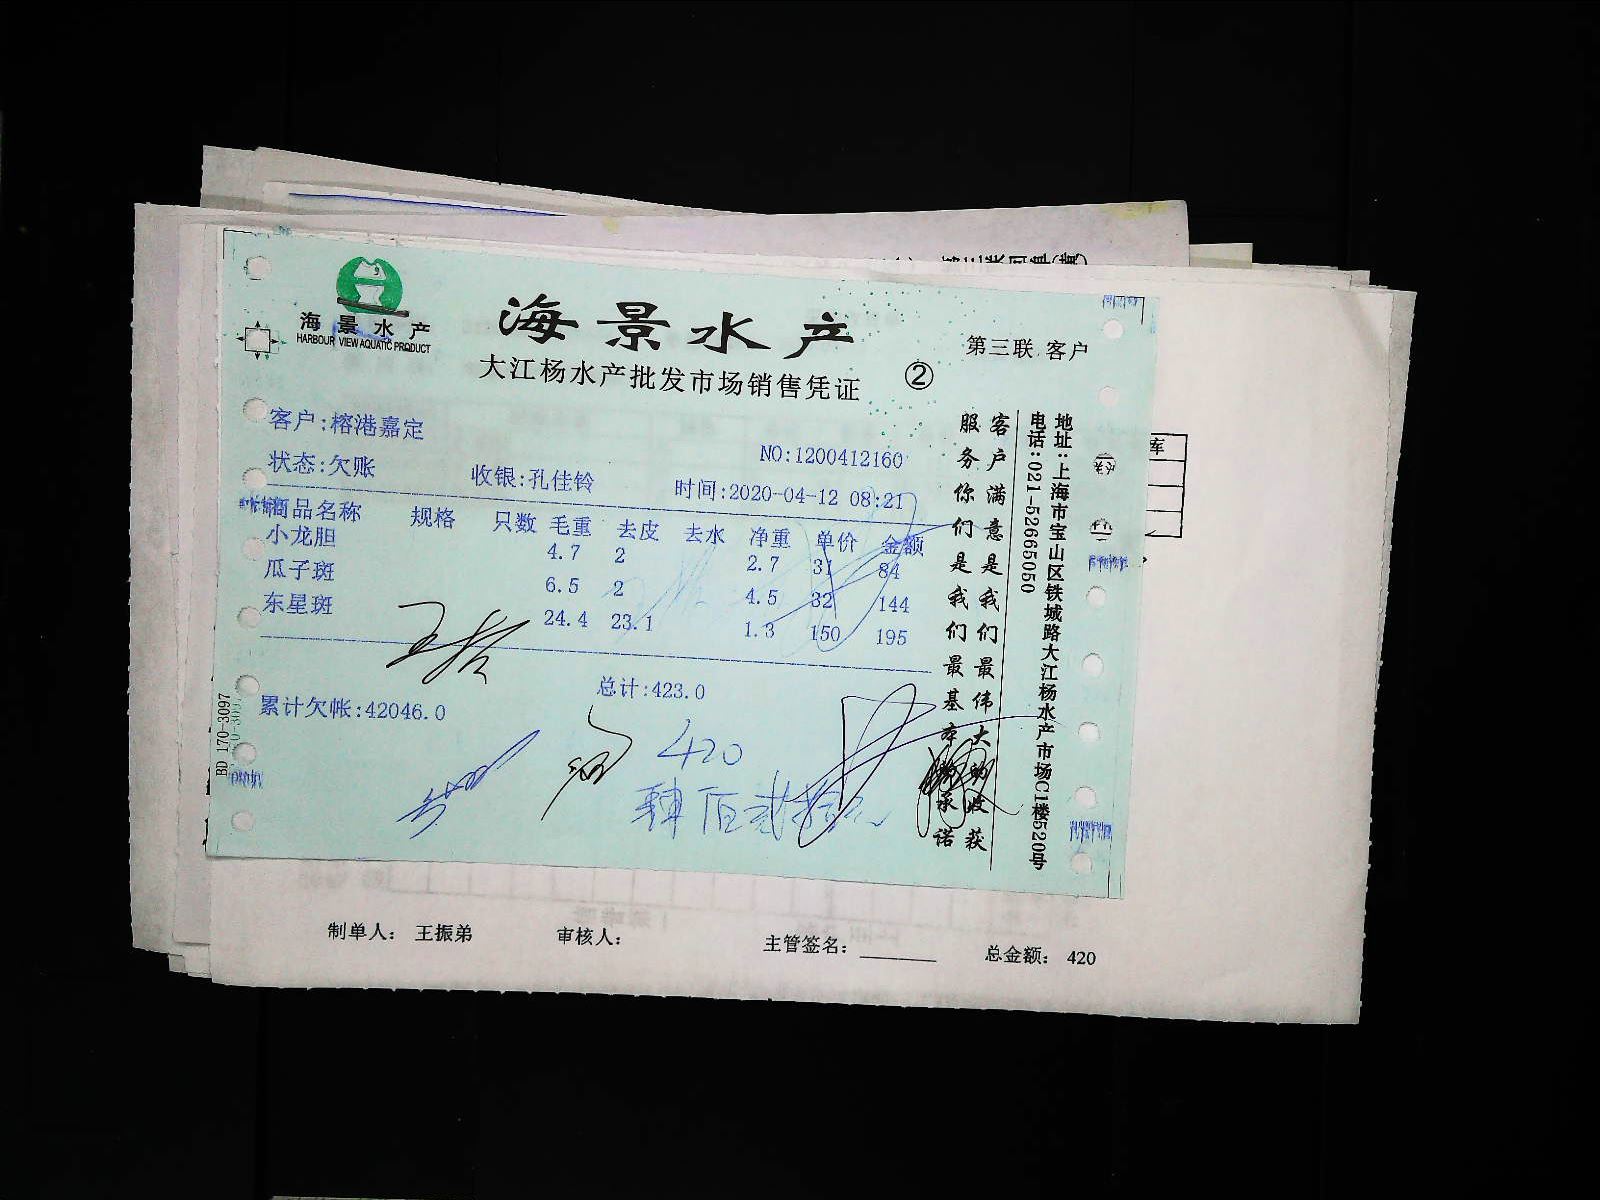 海景水产
HARBOUR VIEW AQUATIC PRODUCT
海景水产
大江杨水产批发市场销售凭证
②
第三联 客户
客户:榕港嘉定
NO:1200412160
状态:欠账 收银:孔佳铃 时间:2020-04-12 08:21
商品名称 规格 只数 毛重 去皮 去水 净重 单价 金额
小龙胆 4.7 2 2.7 31 84
瓜子斑 6.5 2 4.5 32 144
东星斑 24.4 23.1 1.3 150 195
总计:423.0
累计欠帐:42046.0
420
肆佰贰拾元
客户满意是我们最伟大的收获
服务你们是我们最基本的承诺
地址:上海市宝山区铁城路大江杨水产市场C1楼520号
电话:021-52665050
BD 170-3097
库
制单人: 王振弟 审核人: 主管签名: 总金额: 420